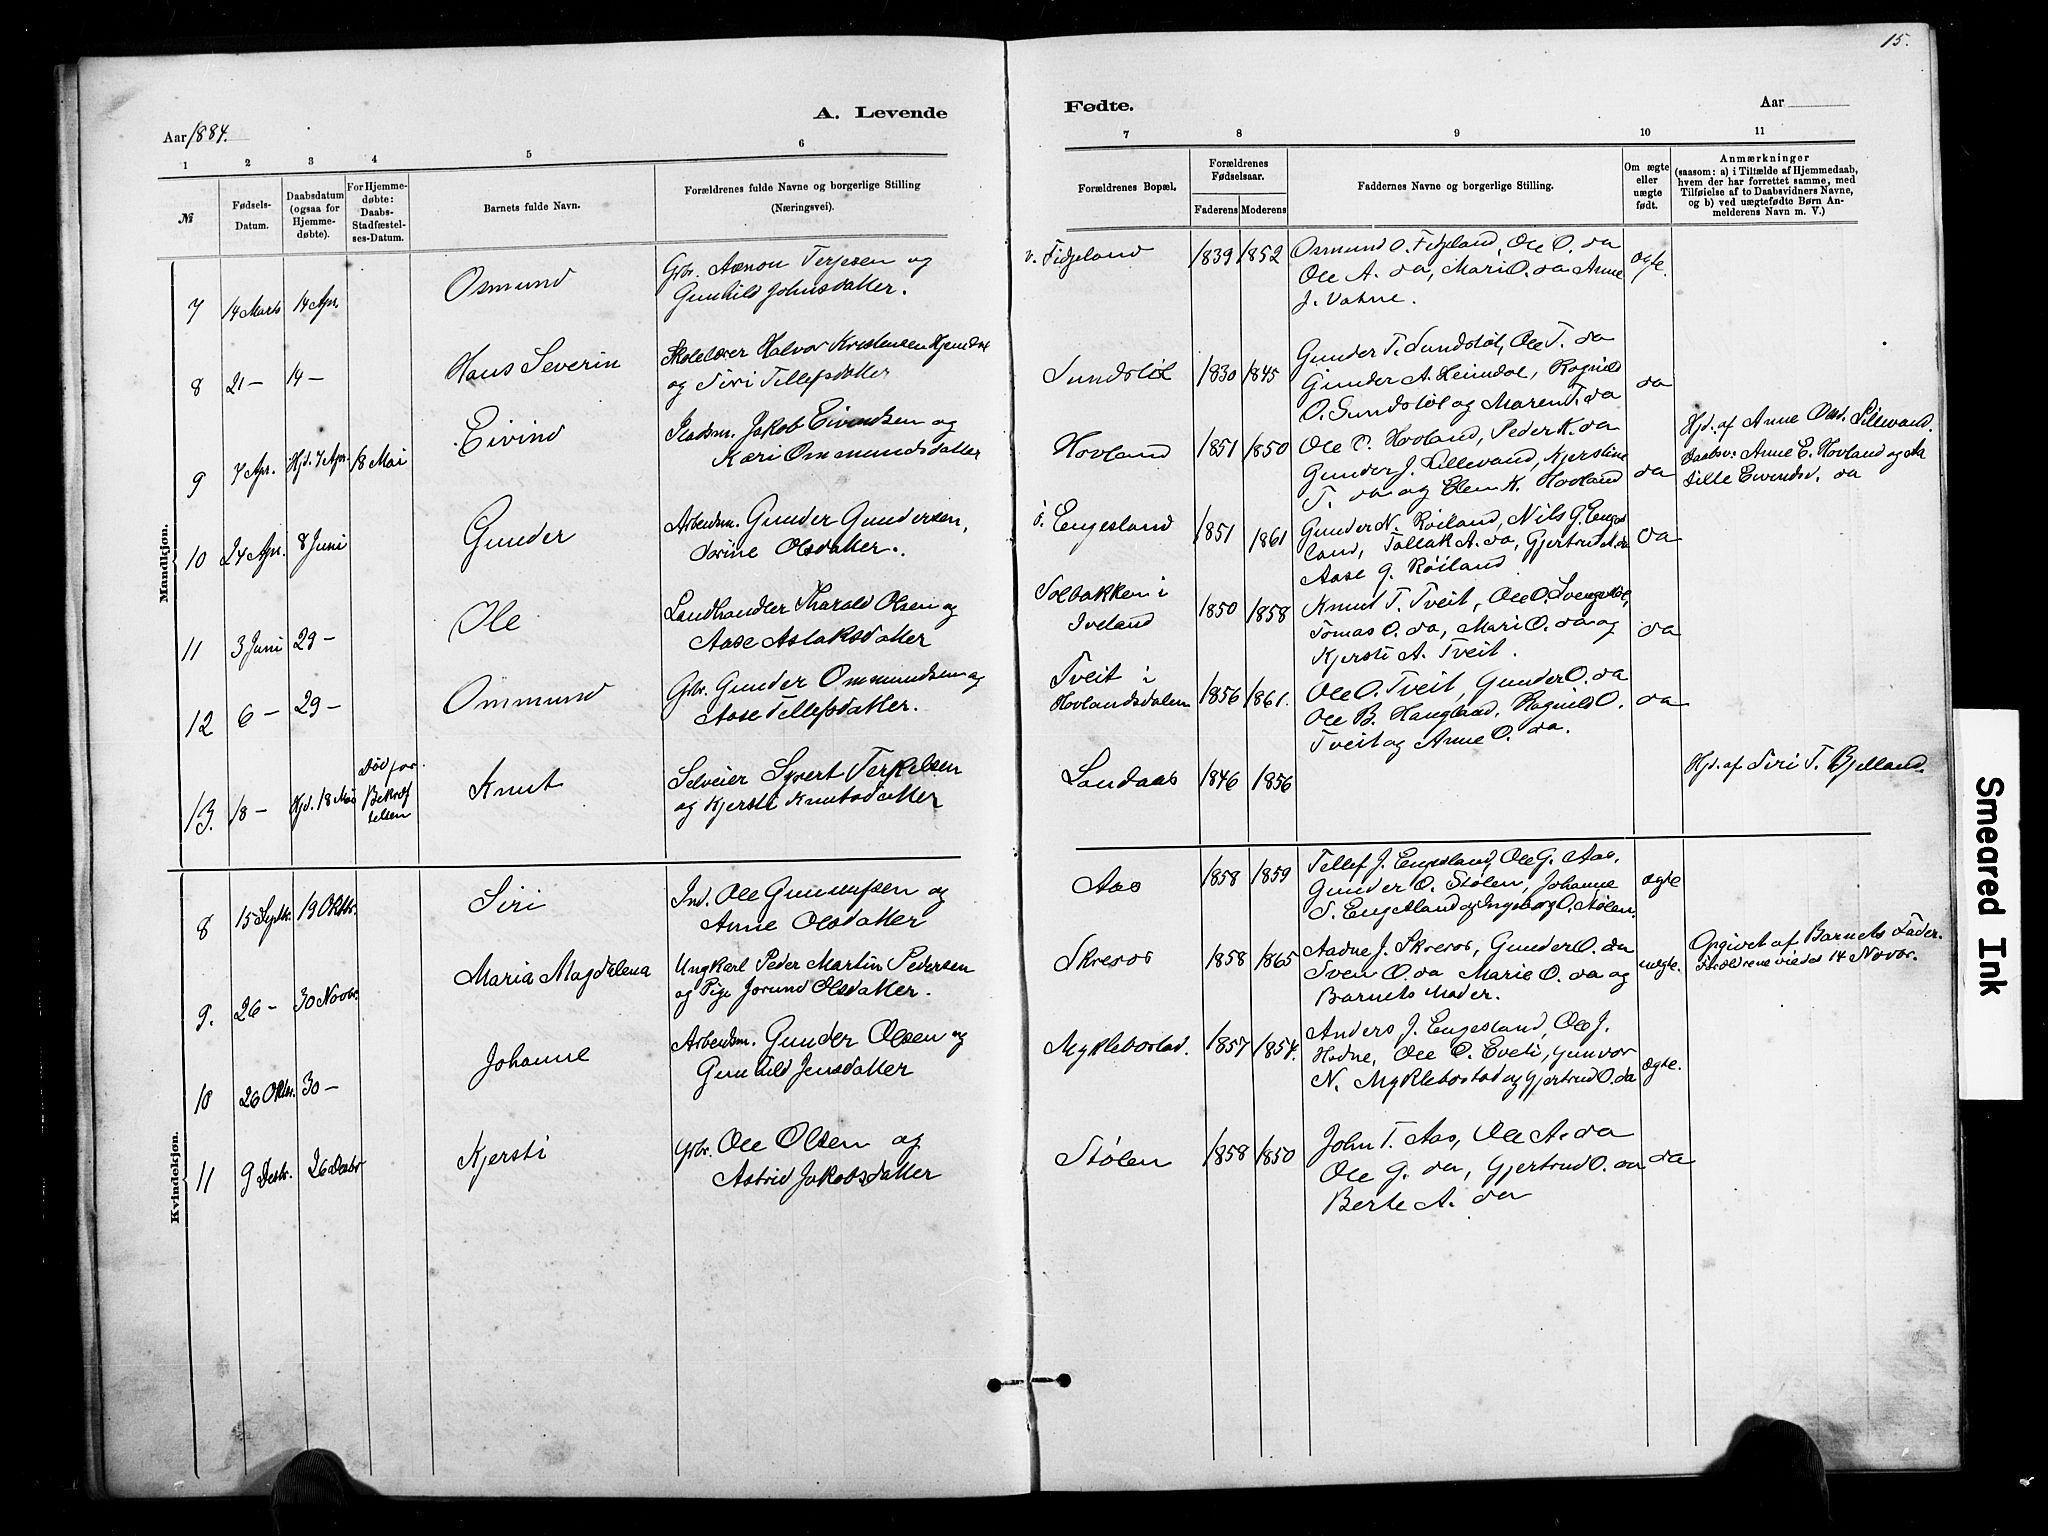 15.
A. Levende
Fødte.
Aar 1884.
Aar
1 2 3 4 5 6
7 8 9 10 11
№
Fødsels-
Datum.
Daabsdatum
(ogsaa for
Hjemme-
døbte).
For Hjemme-
døbte:
Daabs-
Stadfæstel-
ses-Datum.
Barnets fulde Navn.
Forældrenes fulde Navne og borgerlige Stilling
(Næringsvei).
Forældrenes Bopæl.
Forældrenes
Fødselsaar.
Faderens Moderens
Faddernes Navne og Stilling.
Om ægte
eller
uægte
født.
Anmærkninger
(saasom: a) i Tilfælde af Hjemmedaab,
hvem der har forrettet samme, med
Tilføielse af to Daabsvidners Navne,
og b) ved uægtefødte Børn An-
melderens Navn m. V.)
Mandkjøn.
7 14 Marts 14 Apr. Osmund
Gbr. Aanon Terjesen og
Gunhild Johnsdatter.
v. Fidjeland 1839 1852
Osmund O. Fidjeland, Ole O. da
Ole A. da, Mari O. da Anne
J. Vatne.
ægte.
8 21 — 14 — Hans Severin
Skolelærer Halvor Kristensen
og Siri Tellefsdatter
Sundsløl 1830 1845
Gunder T. Sundsløl, Ole T. da
Gunder A. Heimdal, Ragnild
O. Sundsløl og Maren T. da
da
9 7 Apr. Hjd. 7 Apr. 18 Mai Eivind
Pladsm. Jakob Eivindsen og
Kari Ommundsdatter
Hovland 1851 1850
Ole O. Hovland, Peder K. da
Gunder J. Lillevand, Kjerstine
T. da og Elen K. Hovland
da
Hjd. af Anne Lillevand.
Daabsv. Anne E. Hovland og
Eivendsd. da
10 24 Apr. 8 Juni Gunder
Arbeidsm. Gunder Gundersen,
Sørine Olsdatter.
ø. Engesland 1851 1861
Gunder N. Røiland, Nils G. Enges
land, Tallak A. da, Gjertrud A. da
Aase G. Røiland
da
11 3 Juni 29 — Ole
Landhandler Tharald Olsen og
Aase Aslaksdatter
Solbakken i
Iveland 1850 1858
Knud T. Tveit, Ole O.
Tomas O. da, Mari O. da og
Kjersti A. Tveit.
da
12 6 — 29 — Ommund
Gbr. Gunder Ommundsen og
Aase Tellefsdatter.
Tveit i
Hovlandsdalen 1856 1861.
Ole O. Tveit, Gunder O. da
Ole B. Haugland, Ragnild O.
Tveit og Anne O. da.
da
13. 18 — Hjd. 18 Mai
Død for
Bekræf
telsen
Knut
Selveier Syvert Terkelsen
og Kjersti Knutsdatter
Landaas 1846 1856
Hjd. af Siri T. Bjelland.
Kvindekjøn.
8 15 Septbr. 19 Oktbr. Siri
Ind. Ole Gunnufsen og
Anne Olsdatter
Aas 1858 1859
Tellef J. Engesland, Ole G. Aas,
Gunder O. Stølen, Johanne
S. Engesland og Ingeborg O. Stølen.
ægte
9. 26 — 30 Novbr. Maria Magdalena
Ungkarl Peder Martin Pedersen
og Pige Jorund Olsdatter.
Skreros 1858 1865
Aadne J. Skreros, Gunder O. da
Sven O. da Marie O. da og
Barnets Moder.
uægte.
Opgivet af Barnets Fader.
Forældrene viedes 14 Novbr.
10 26 Oktbr. 30 — Johanne
Arbeidsm. Gunder Olsen og
Gunhild Jensdatter
Myklebostad. 1857 1854.
Anders J. Engesland, Ole J.
Hodne, Ole O. Eveti, Gunvor
N. Myklebostad og Gjertrud O. da
ægte.
11 9 Decbr. 26 Decbr Kjersti
Gbr. Ole Olsen og
Astrid Jakobsdatter
Stølen 1858 1850
John T. Aas, Ole A. da
Ole G. da, Gjertrud O. da
Berte A. da
da
Smeared Ink